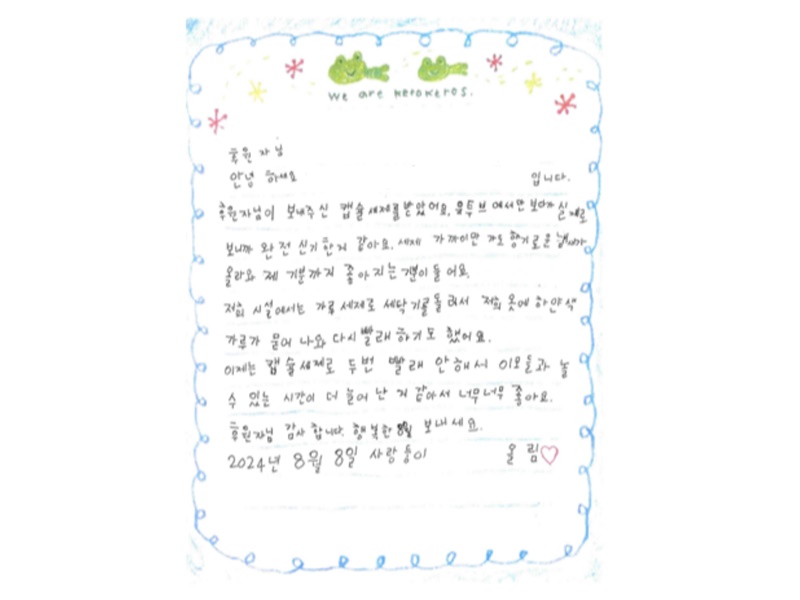 we are kerokeros.
후원자님
안녕하세요 입니다.
후원자님이 보내주신 캡슐세제를 받았어요. 유튜브에서만 보다가 실제로
보니까 완전 신기한거 같아요. 세제 가까이만 가도 향기로운 냄새가
올라와 제 기분까지 좋아지는 기분이 들어요.
저희 시설에서는 가루세제로 세탁기를 돌려서 저희 옷에 하얀색
가루가 묻어 나와 다시 빨래하기도 했어요.
이제는 캡슐세제로 두번 빨래 안해서 이모들과 놀
수 있는 시간이 더 늘어난거 같아서 너무너무 좋아요.
후원자님 감사합니다. 행복한 8월 보내세요.
2024년 8월 8일 사랑둥이 올림♡